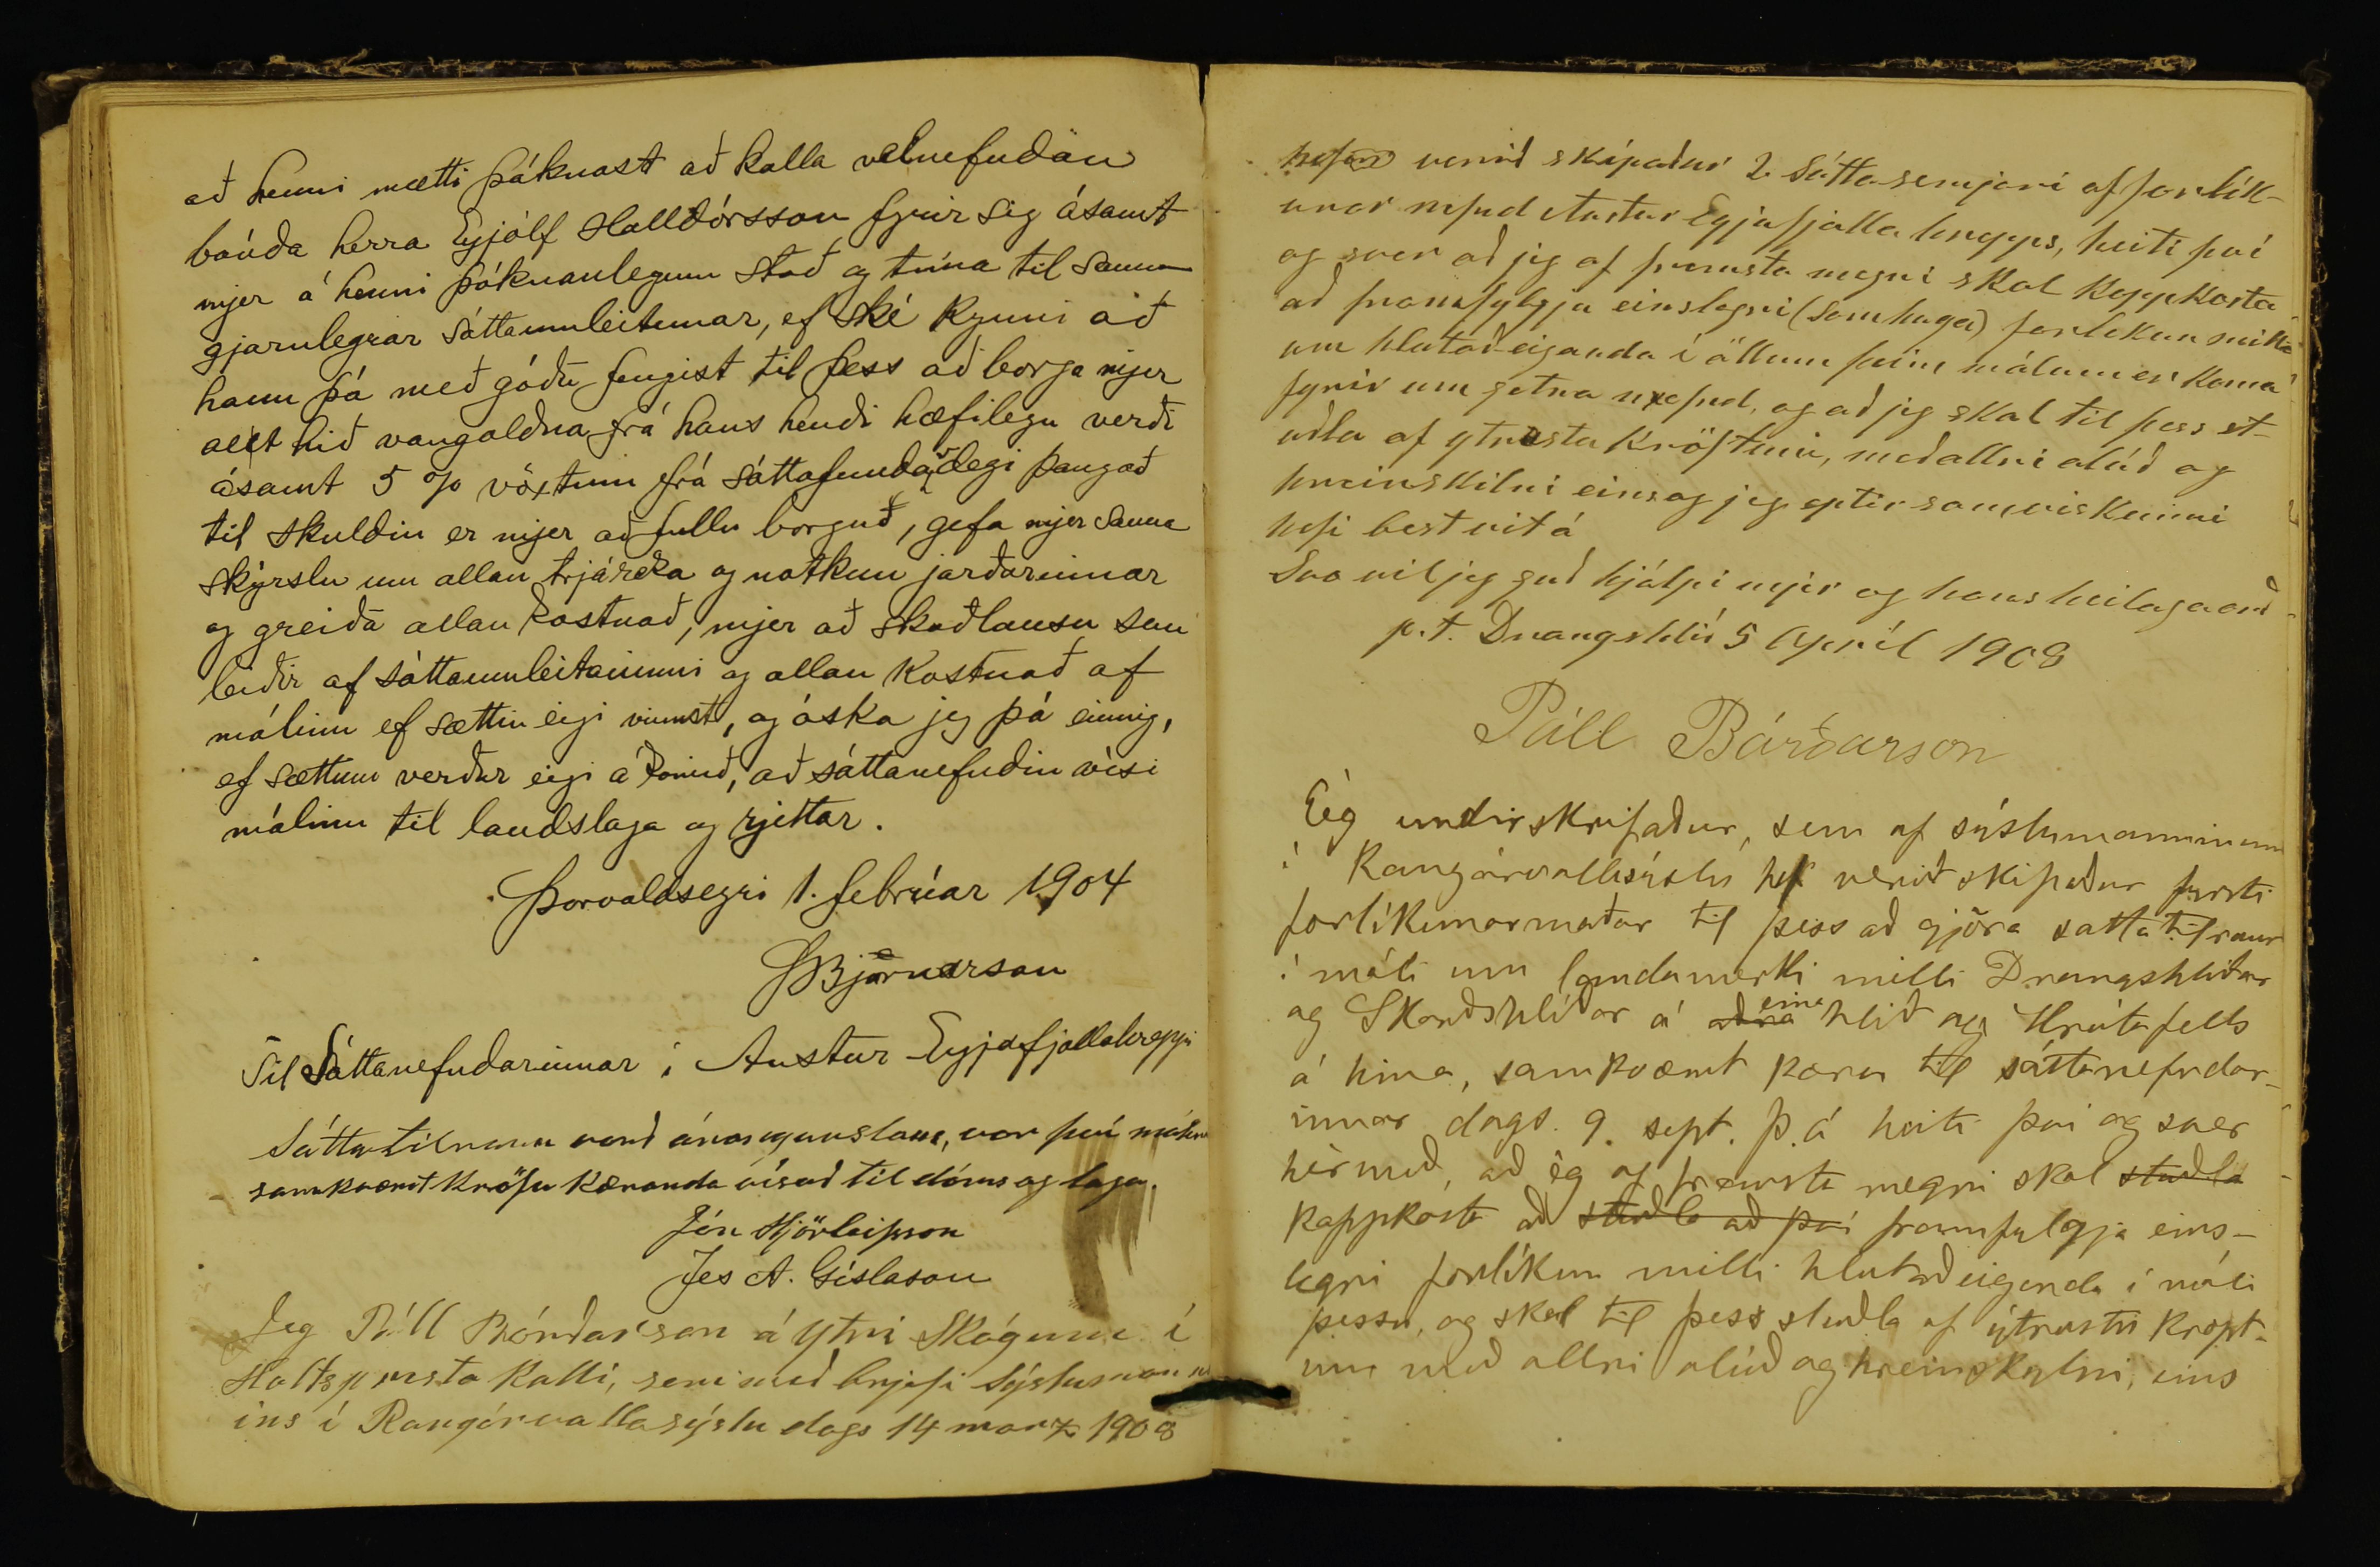 að henni mætti þóknast að kalla velnefndan
bónda herra Eyjólf Halldórsson fyrir sig ásamt
mjer á henni þóknanlegum stað og tíma til sann-
gjarnlegrar sáttaumleitunar, ef ské kynni að
hann þá með góðu fengist til þess að borga mjer
allt hið vangoldna frá hans hendi hæfilegu verði
ásamt 5 % vöxtum frá sáttafundardegi þangað
til skuldin er mjer að fullu borguð, gefa mjer sanna
skýrslu um allan trjáreka og notkun jarðarinnar
og greiða allan kostnað, mjer að skaðlausu sem
leiðir af sáttaumleitaninni og allan kostnað af
málinu ef sættin eigi vinnst, og óska jeg þá einnig,
ef sættum verður eigi á komið, að sáttanefndin vísi
málinu til landslaga og rjettar.
Þorvaldseyri 1. febrúar 1904
ÞBjörnarson
Til Sáttanefndarinnar í Austur-Eyjafjallahreppi
Sáttatilraun varð árangurslaus, var því málinu
samkvæmt kröfu kæranda vísað til dóms og laga.
Jón Hjörleifsson
Jes A. Gíslason
Jeg Páll Bárðarson á Ytri Skógum í
Holtsprestakalli, sem með brjefi sýslumanns
ins í Rangárvallasýslu dags 14 marz 1908
hefur verið skipaður 2. Sáttasemjari af forlík-
unar nefnd Austur Eyjafjalla hrepps, heiti því
og sver að jeg af fremsta megni skal kappkosta
að framfylgja einslegri (Samhuga) forlíkun milli
um hlutaðeiganda í öllum þeim málum er koma
fyrir um getna nefnd, og að jeg skal til þess st-
uðla af ytrustu kröftum, með allri alúð og
hreinskilni eins og jeg eptir samviskunni
hefi best vit á
Svo viljeg guð hjálpi mjer og hans heilaga orð
p.t. Drangshlíð 5 Apríl 1908
Páll Bárðarson
Eég undirskrifaður, sem af sýslumanninum
í Rangárvallasýslu hef verið skipaður fyrsti
forlíkunarmaður til þess að gjöra sátta tilraun
í máli um landamerki milli Drangshlíðar
og Skarðshlíðar á aðra eina hlið og Hrútafells
á hina, samkvæmt kæru til sáttanefndar-
innar dags. 9. sept. þ.á heiti því og sver
hérmeð, að ég af fremsta megni skal stuðla
kappkosta að stuðla að því framfylgja eins-
legri forlíkun milli hlutaðeigenda í máli
þessu, og skal til þess stuðla af ýtrustu kröpt-
um með allri alúð og hreinskylni, eins